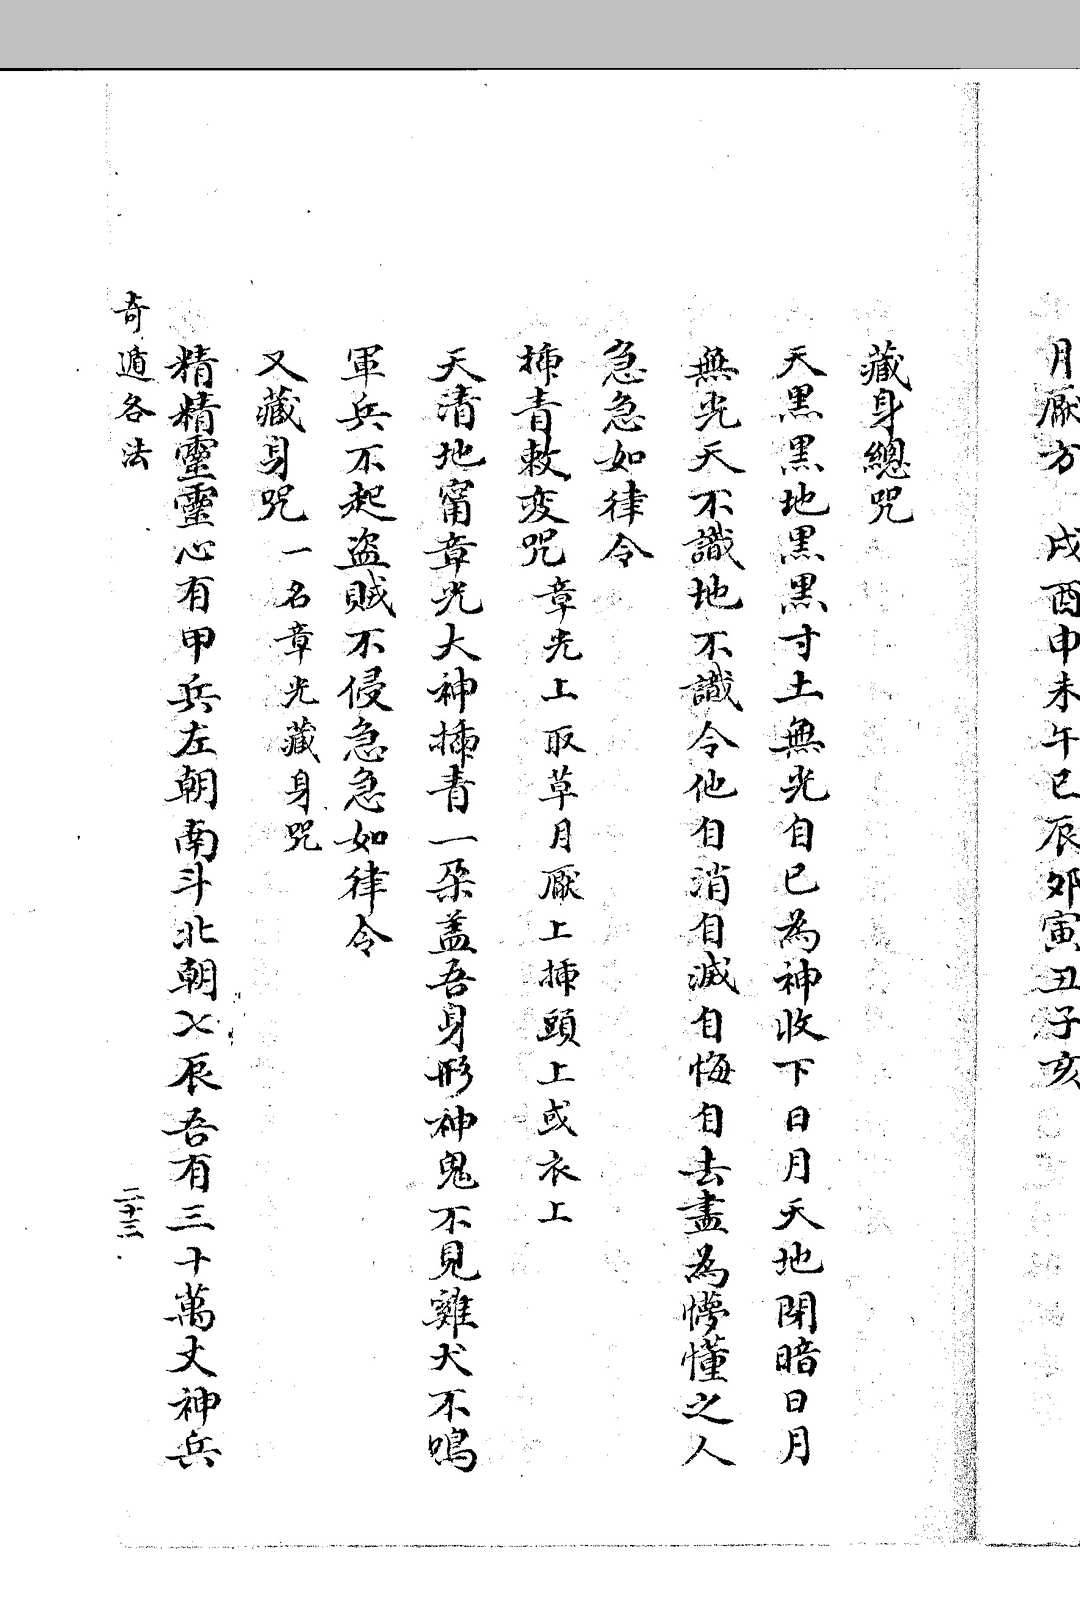 月厭方　戌酉申未午巳辰卯寅丑子亥
藏身總咒
天黑黑地黑黑寸土無光自己為神收下日月天地閉暗日月
無光天不識地不識令他自消自滅自悔自去盡為懜懂之人
急急如律令
挿青敕变咒 章光上取草月厭上挿頭上或衣上
天清地甯章光大神挿青一朶盖吾身形神鬼不見雞犬不鳴
軍兵不起盗賊不侵急急如律令
又藏身咒 一名章光藏身咒
精精靈靈心有甲兵左朝南斗北朝七辰吾有三十萬丈神兵
奇遁各法
二十三